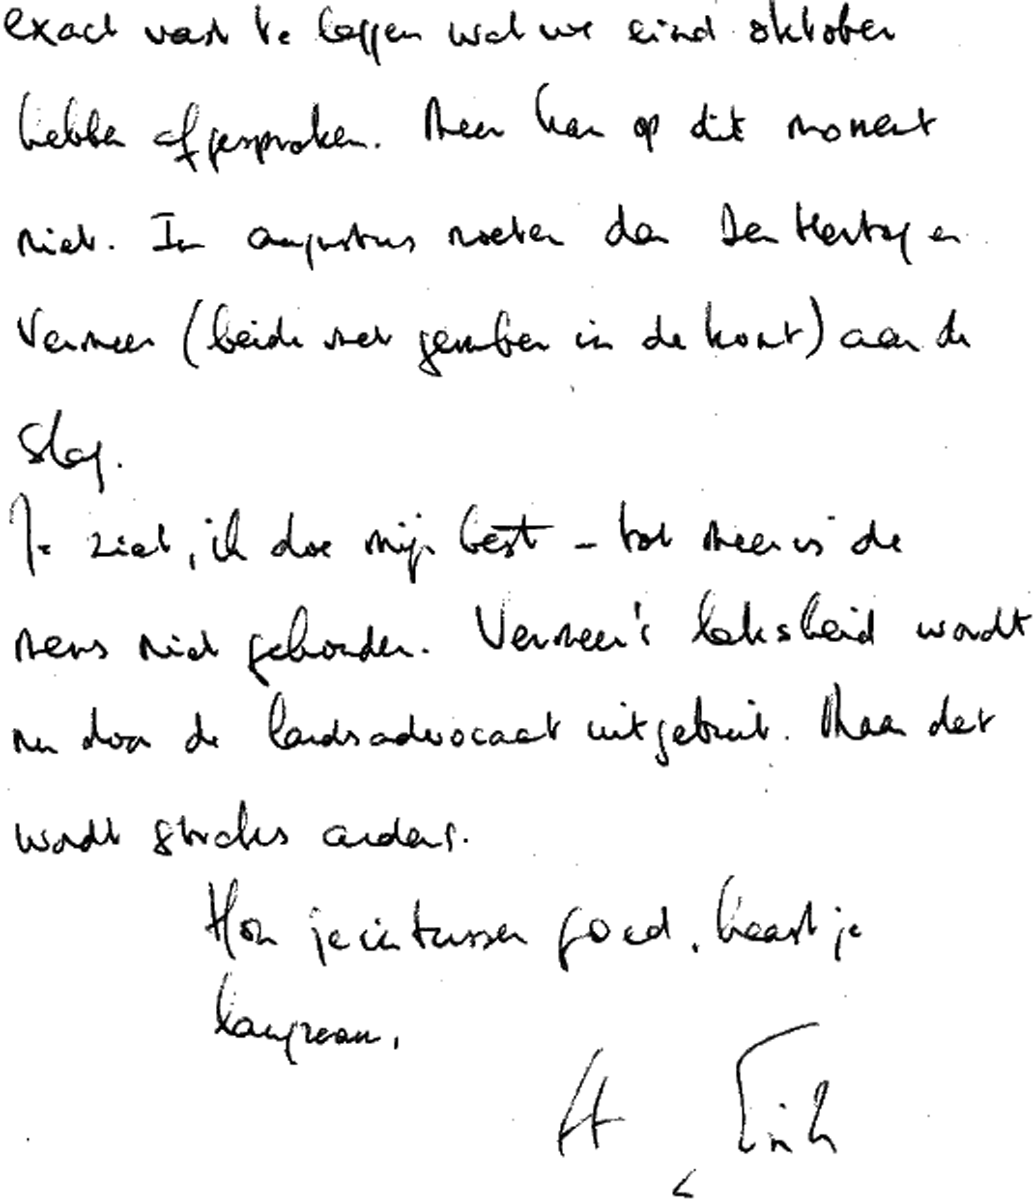 exact vast te leggen wat we eind oktober
hebben afgesproken. Meer kan op dit moment
niet. In augustus moeten dan Den Hertog en
Vermeer (beide met gember in de kont) aan de
slag.
Je ziet, ik doe mijn best - tot meer is de
mens niet gehouden. Vermeer's laksheid wordt
nu door de landsadvocaat uitgebuit. Maar dat
wordt straks anders.
Hou je intussen goed, haast je
langzaam,